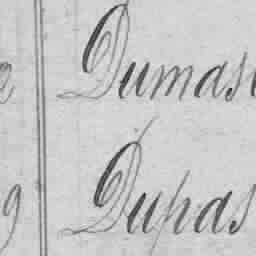 Dumas
Dupas